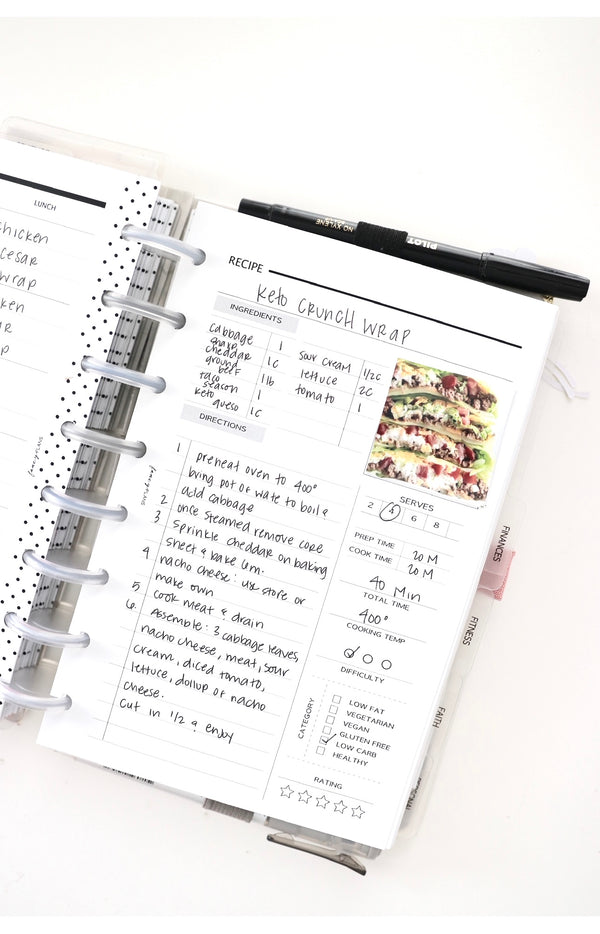 LUNCH
chicken
cesar
wrap
ken
ar
p
NO XYLENE
PILOT
RECIPE
KETO CRUNCH WRAP
INGREDIENTS
cabbage 1
sharp
cheddar 1c
ground
beef 1lb
taco
seacon 1
keto
queso 1c
sour cream 1/2c
lettuce 2c
tomato 1
DIRECTIONS
1 preheat oven to 400°
bring pot of wate to boil &
2 add cabbage
3 once steamed remove core
sprinkle cheddar on baking
4 sheet & bake 6m.
nacho cheese: use store or
make own
5 cook meat & drain
6. Assemble: 3 cabbage leaves,
nacho cheese, meat, sour
cream, diced tomato,
lettuce, dollup of nacho
cheese.
cut in 1/2 & enjoy
SERVES
2 4 6 8
PREP TIME 20 M
COOK TIME 20 M
40 Min
TOTAL TIME
400°
COOKING TEMP
DIFFICULTY
CATEGORY
LOW FAT
VEGETARIAN
VEGAN
GLUTEN FREE
LOW CARB
HEALTHY
RATING
FINANCES
FITNESS
FAITH